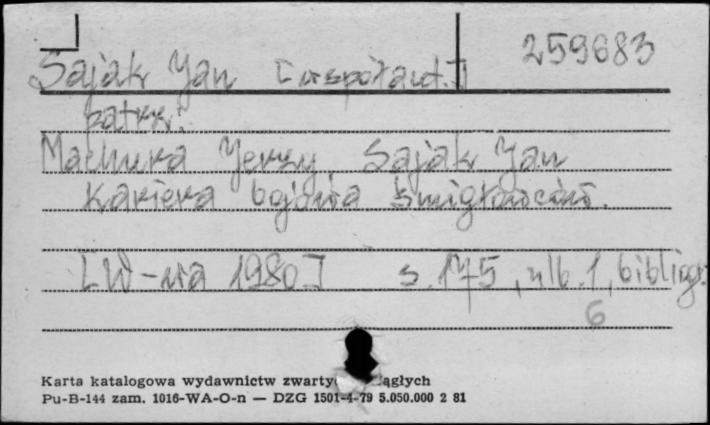 259683
Sajak Jan [współaut.]
patrz:
Machura Jerzy, Sajak Jan
Kariera bojowa śmigłowców.
[W-wa 1980] s. 175, nlb. 1, bibliogr.
6
Karta katalogowa wydawnictw zwarty ągłych
Pu-B-144 zam. 1016-WA-O-n — DZG 1501-4-79 5.050.000 2 81